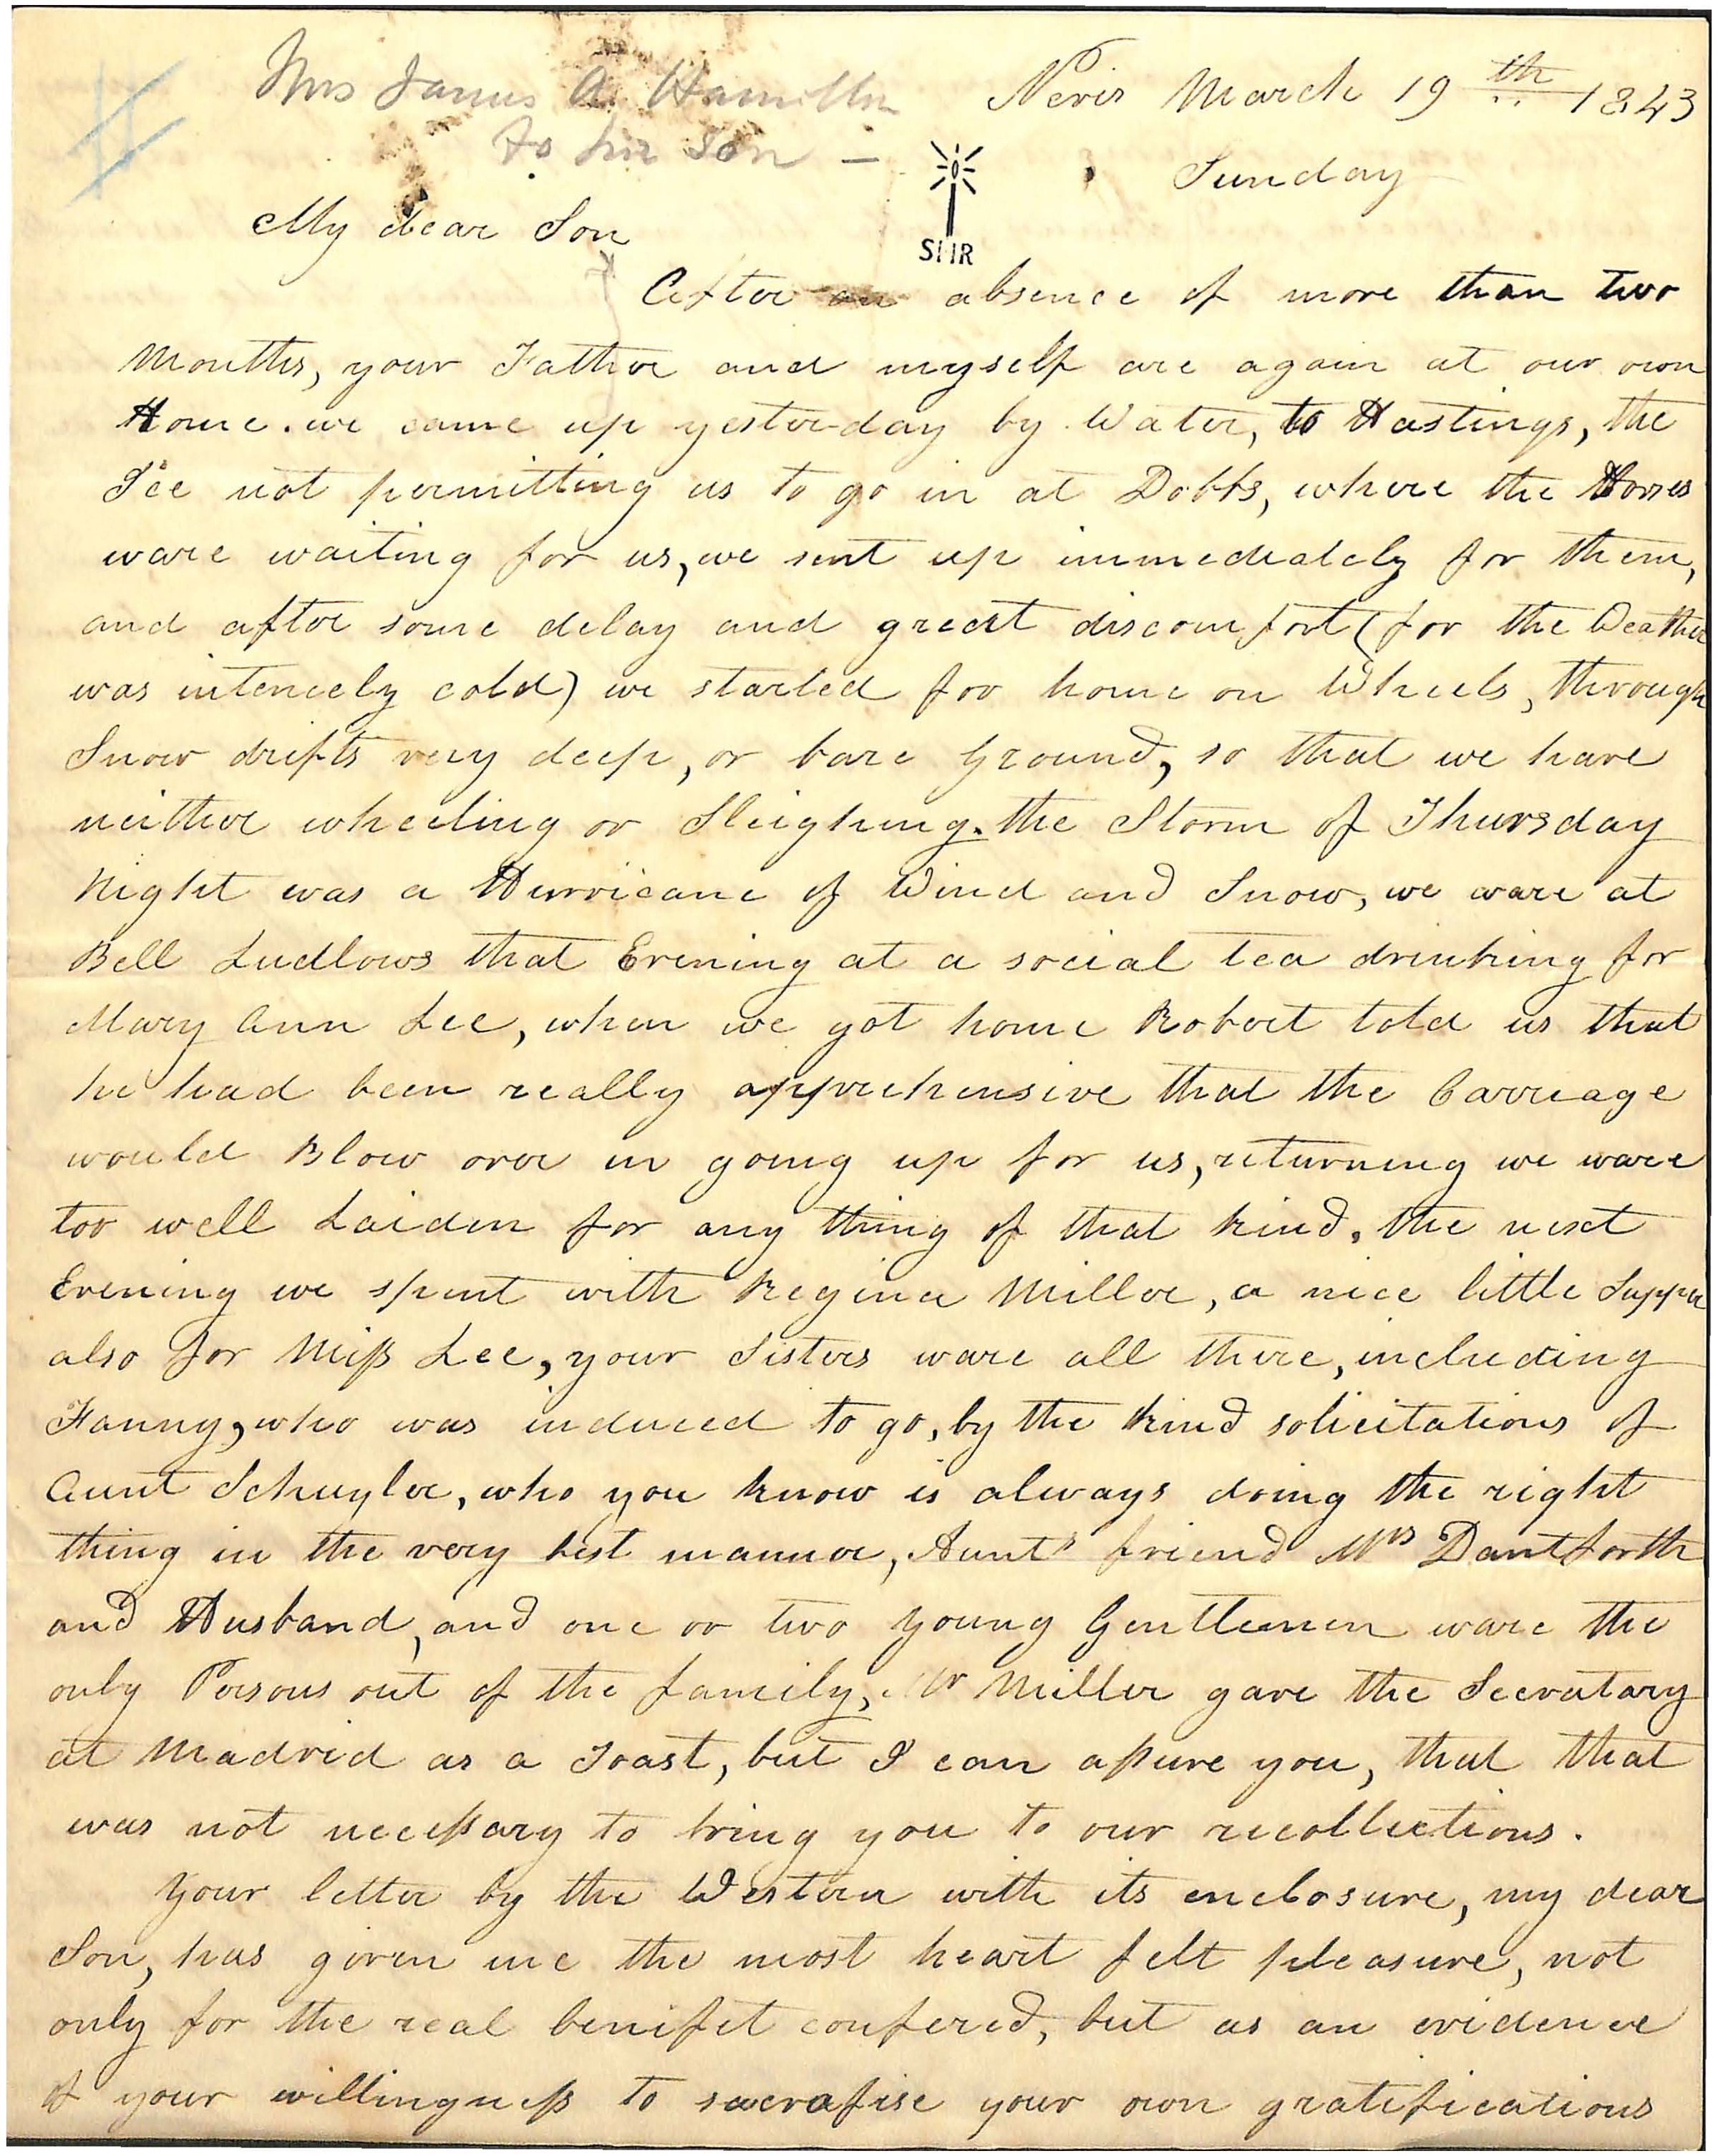 Mrs James A. Hamilton
to her son —
Nevis March 19th 1843
Sunday
SHR
My dear Son
After an absence of more than two
Months, your Father and myself are again at our own
Home. we came up yesterday by Water, to Hastings, the
Ice not permitting us to go in at Dobbs, where the Horses
ware waiting for us, we sent up immediately for them,
and after some delay and great discomfort (for the Weather
was intencely cold) we started for home on Wheels, through
Snow drifts very deep, or bare ground, so that we have
neither wheeling or Sleighing. the Storm of Thursday
Night was a Hurricane of Wind and Snow, we ware at
Bell Ludlows that Evening at a social tea drinking for
Mary Ann Lee, when we got home Robert told us that
he had been really apprehensive that the Carreage
would Blow over in going up for us, returning we ware
too well Laiden for any thing of that kind. the next
Evening we spent with Regina Miller, a nice little Supper
also for Miss Lee, your Sisters ware all there, including
Fanny, who was induced to go, by the kind solicitations of
Aunt Schuyler, who you know is always doing the right
thing in the very best manner, Aunts friend Mrs Dantforth
and Husband, and one or two young Gentlemen ware the
only Persons out of the family, Mr Miller gave the Secratary
at Madrid as a Toast, but I can assure you, that that
was not necessary to bring you to our recollections.
Your letter by the Western with its enclosure, my dear
Son, has given me the most heart felt pleasure, not
only for the real benifit confered, but as an evidence
of your willingness to sacrafise your own gratifications